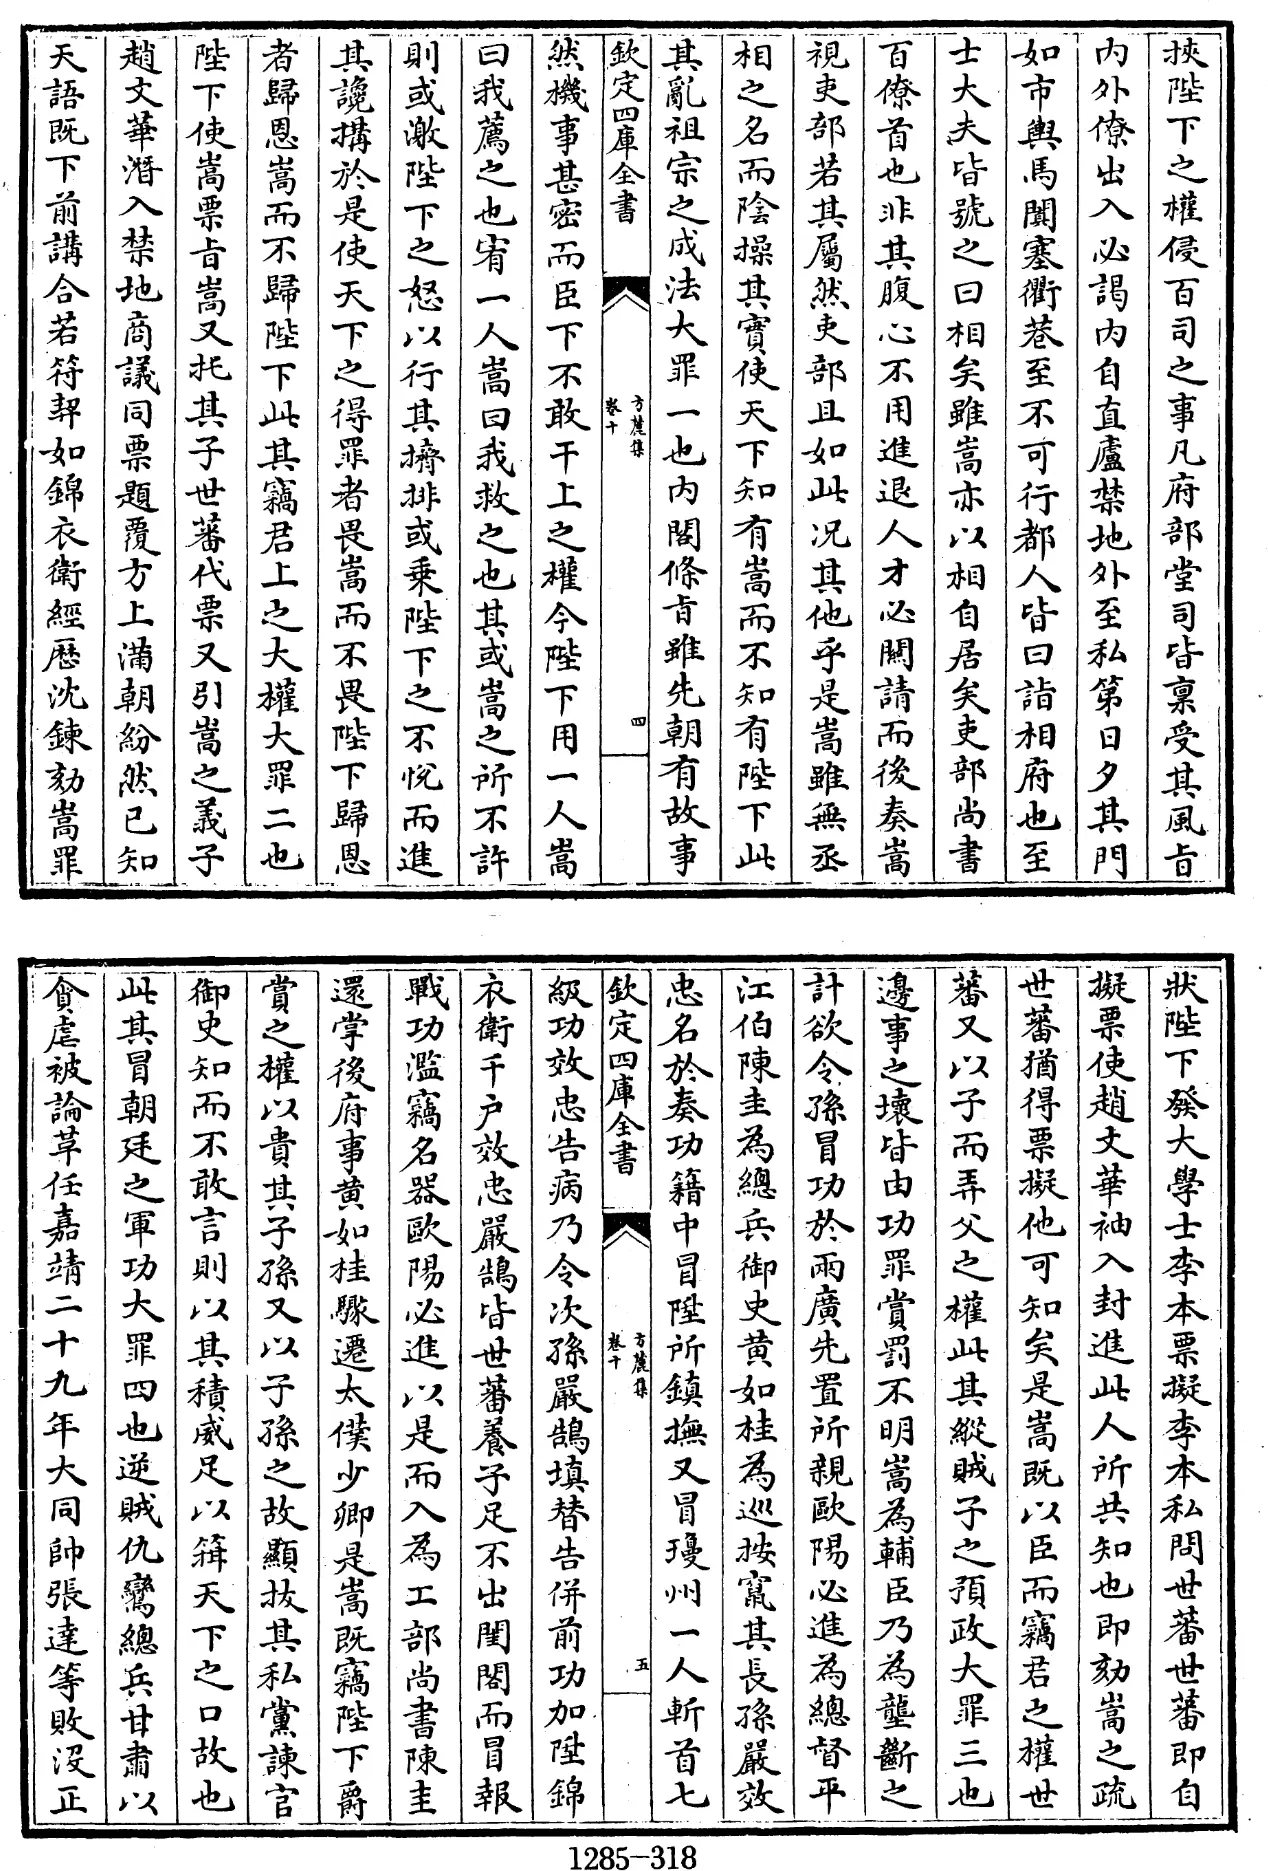 挾陛下之權侵百司之事凡府部堂司皆稟受其風㫖
内外僚出入必謁内自直廬禁地外至私第日夕其門
如市輿馬闐塞衢巷至不可行都人皆曰詣相府也至
士大夫皆號之曰相矣雖嵩亦以相自居矣吏部尚書
百僚首也非其腹心不用進退人才必關請而後奏嵩
視吏部若其屬然吏部且如此况其他乎是嵩雖無丞
相之名而陰操其實使天下知有嵩而不知有陛下此
其亂祖宗之成法大罪一也内閣條㫖雖先朝有故事
欽定四庫全書
方麓集
卷十
四
然機事甚密而臣下不敢干上之權今陛下用一人嵩
曰我薦之也宥一人嵩曰我救之也其或嵩之所不許
則或激陛下之怒以行其擠排或乗陛下之不悅而進
其讒搆於是使天下之得罪者畏嵩而不畏陛下歸恩
者歸恩嵩而不歸陛下此其竊君上之大權大罪二也
陛下使嵩票㫖嵩又托其子世蕃代票又引嵩之義子
趙文華潛入禁地商議同票題覆方上滿朝紛然已知
天語既下前講合若符契如錦衣衛經歴沈鍊劾嵩罪
狀陛下發大學士李本票擬李本私問世蕃世蕃即自
擬票使趙文華袖入封進此人所共知也即劾嵩之疏
世蕃猶得票擬他可知矣是嵩既以臣而竊君之權世
蕃又以子而弄父之權此其縱賊子之預政大罪三也
邊事之壞皆由功罪賞罰不明嵩為輔臣乃為壟斷之
計欲令孫冒功於兩廣先置所親歐陽必進為總督平
江伯陳圭為總兵御史黄如桂為巡按竄其長孫嚴效
忠名於奏功籍中冒陞所鎮撫又冒瓊州一人斬首七
欽定四庫全書
方麓集
卷十
五
級功效忠告病乃令次孫嚴鵠填替告併前功加陞錦
衣衛千户效忠嚴鵠皆世蕃養子足不出閨閣而冒報
戰功濫竊名器歐陽必進以是而入為工部尚書陳圭
還掌後府事黄如桂驟遷太僕少卿是嵩既竊陛下爵
賞之權以貴其子孫又以子孫之故顯拔其私黨諫官
御史知而不敢言則以其積威足以箝天下之口故也
此其冒朝廷之軍功大罪四也逆賊仇鸞總兵甘肅以
貪虐被論革任嘉靖二十九年大同帥張達等敗没正
1285-318